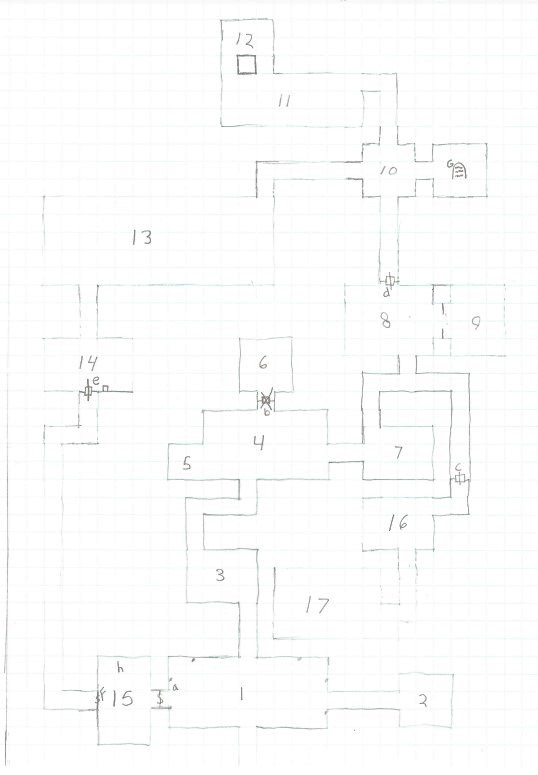 12
11
10
G
13
d
8
9
14
e
6
b
4
5
7
c
16
3
17
h
a
f
15
S
1
2